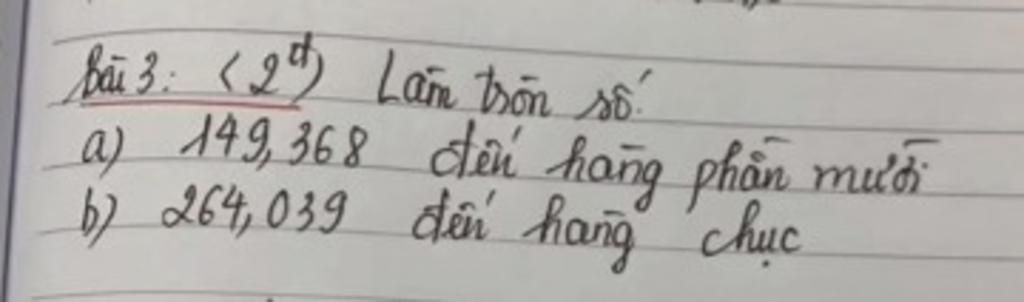 Bài 3: (2đ) Làm tròn số.
a) 149,368 đến hàng phần mười
b) 264,039 đến hàng chục